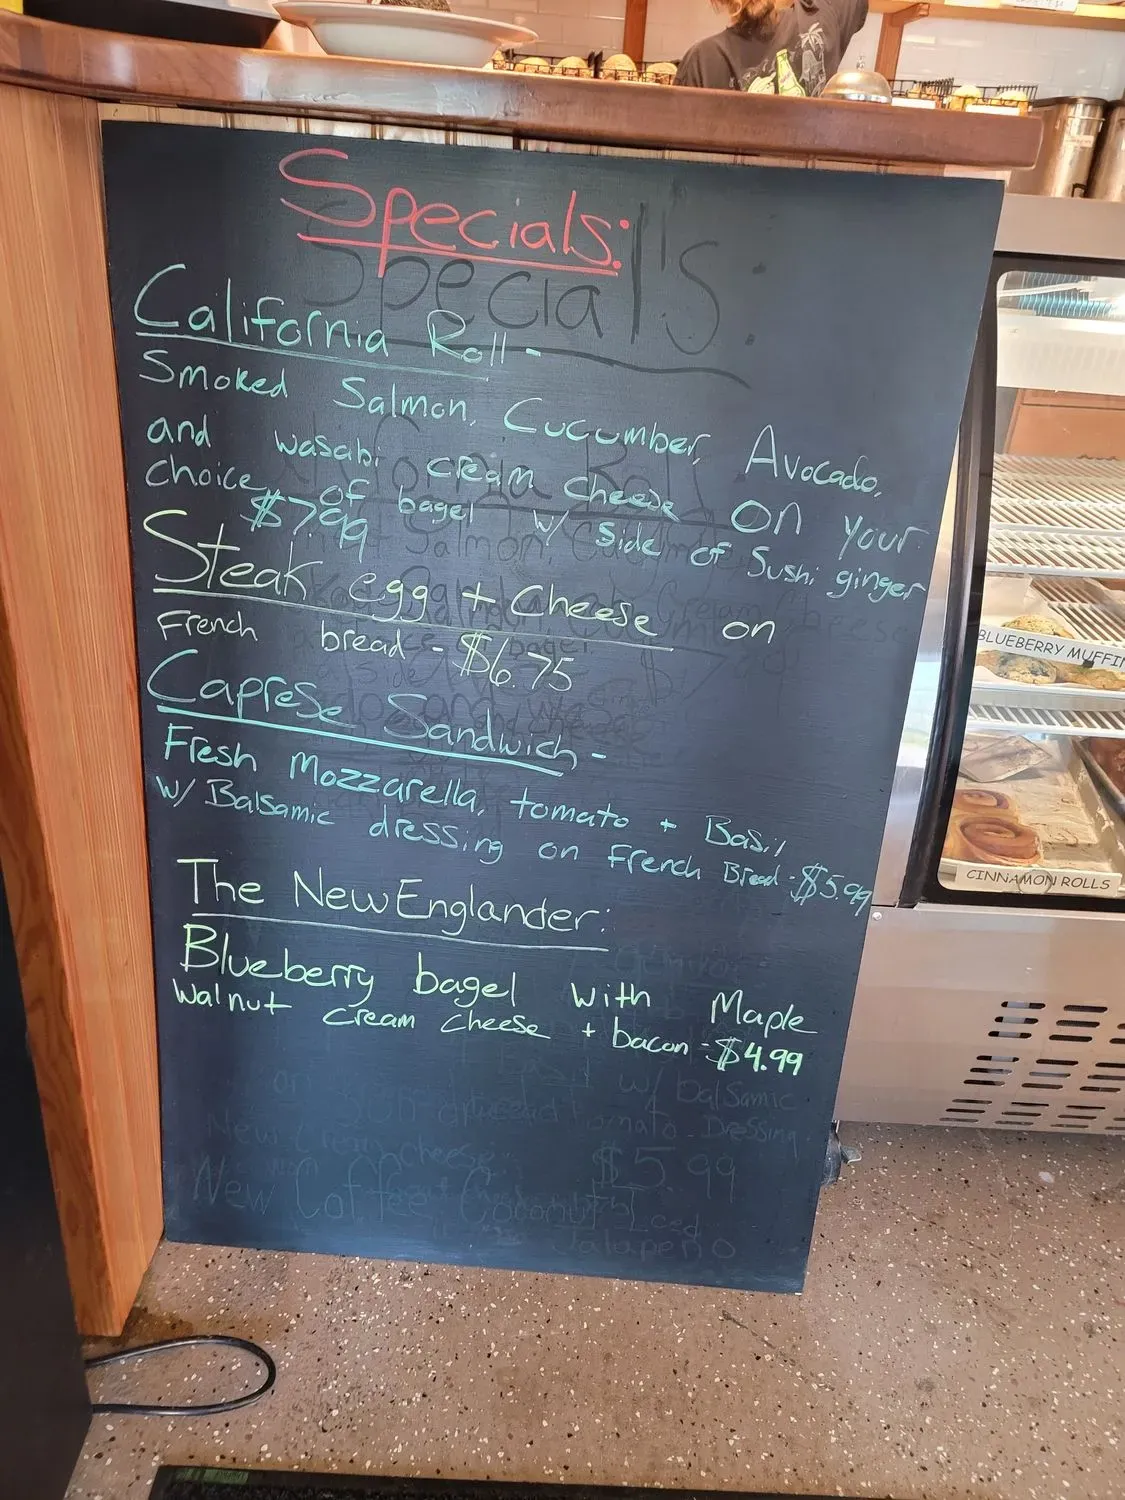 Specials:
California Roll -
Smoked Salmon, Cucumber, Avocado,
and wasabi cream cheese on your
choice of bagel w/ side of Sushi ginger
$7.99
Steak egg + Cheese on
French bread - $6.75
Caprese Sandwich -
Fresh mozzarella, tomato + Basil,
w/ Balsamic dressing on French Bread - $5.99
The New Englander:
Blueberry bagel with Maple
walnut cream cheese + bacon - $4.99
Special's:
w/ balsamic
tomato Dressing
New Cream cheese:
$5.99
New Coffee: Coconut Iced
Jalapeño
BLUEBERRY MUFFIN
CINNAMON ROLLS